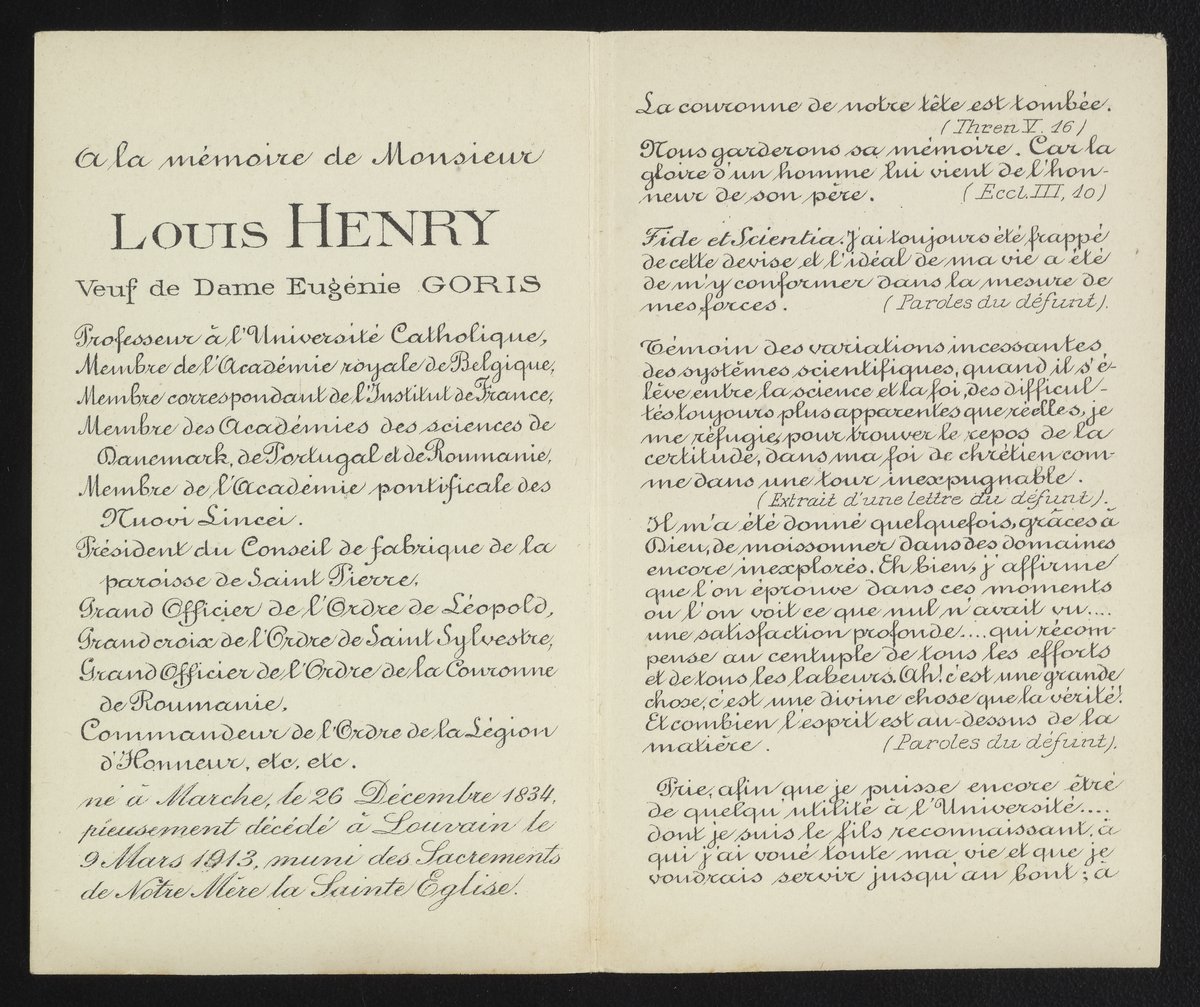 A la mémoire de Monsieur
LOUIS HENRY
Veuf de Dame Eugénie GORIS
Professeur à l'Université Catholique,
Membre de l'Académie royale de Belgique,
Membre correspondant de l'Institut de France,
Membre des Académies des sciences de
Danemark, de Portugal et de Roumanie,
Membre de l'Académie pontificale des
Nuovi Lincei.
Président du Conseil de fabrique de la
paroisse de Saint Pierre,
Grand Officier de l'Ordre de Léopold,
Grand croix de l'Ordre de Saint Sylvestre,
Grand Officier de l'Ordre de la Couronne
de Roumanie,
Commandeur de l'Ordre de la Légion
d'Honneur, etc, etc.
né à Marche, le 26 Décembre 1834,
pieusement décédé à Louvain le
9 Mars 1913, muni des Sacrements
de Notre Mère la Sainte Eglise.
La couronne de notre tête est tombée.
(Thren V. 16)
Nous garderons sa mémoire. Car la
gloire d'un homme lui vient de l'hon-
neur de son père. (Eccl. III, 10)
Fide et Scientia. J'ai toujours été frappé
de cette devise et l'idéal de ma vie a été
de m'y conformer dans la mesure de
mes forces. (Paroles du défunt).
Témoin des variations incessantes
des systèmes scientifiques, quand il s'é-
lève entre la science et la foi, des difficul-
tés toujours plus apparentes que réelles, je
me réfugie, pour trouver le repos de la
certitude, dans ma foi de chrétien com-
me dans une tour inexpugnable.
(Extrait d'une lettre du défunt).
Il m'a été donné quelquefois, grâces à
Dieu, de moissonner dans des domaines
encore inexplorés. Eh bien, j'affirme
que l'on éprouve dans ces moments
ou l'on voit ce que nul n'avait vu....
une satisfaction profonde.... qui récom-
pense au centuple de tous les efforts
et de tous les labeurs. Ah! c'est une grande
chose, c'est une divine chose que la vérité!
Et combien l'esprit est au-dessus de la
matière. (Paroles du défunt).
Prie, afin que je puisse encore être
de quelqu'utilité à l'Université....
dont je suis le fils reconnaissant, à
qui j'ai voué toute ma vie et que je
voudrais servir jusqu'au bout; à